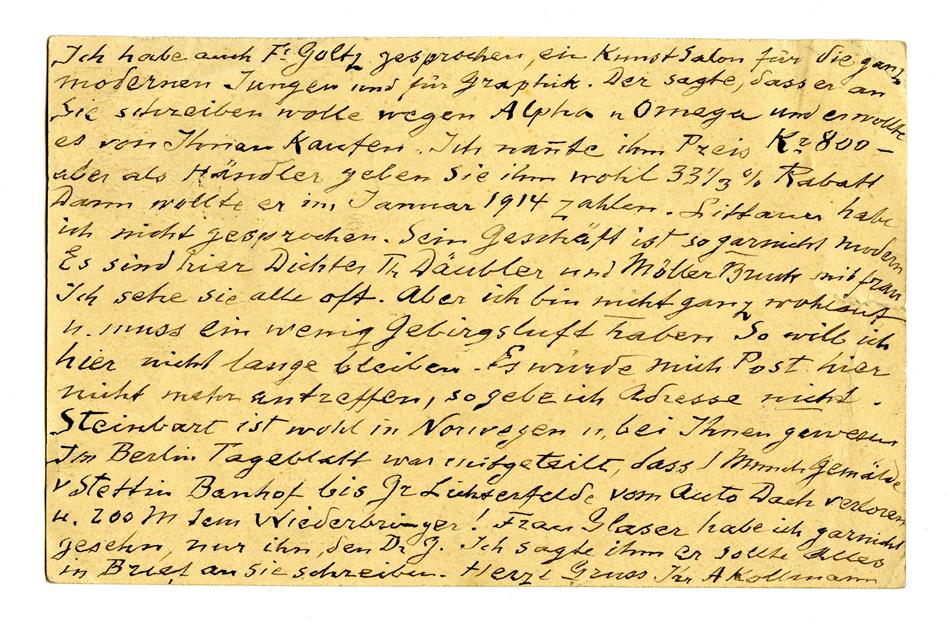 Ich habe auch Fr Goltz gesprochen, ein Kunst Salon für die ganz
modernen Jungen und für Graphik. Der sagte, dass er an
Sie schreiben wolle wegen Alpha u Omega und er wollte
es von Ihnen Kaufen. Ich nan̄te ihm Preis Kr 800 –
aber als Händler geben Sie ihm wohl 33 1/3 % Rabatt
Dann wollte er im Januar 1914 zahlen. Littauer habe
ich nicht gesprochen. Sein Geschäft ist so garnicht modern
Es sind hier Dichter Th Däubler und Möller Bruck mit frau
Ich sehe sie alle oft. Aber ich bin nicht ganz wohlauf
u. muss ein wenig Gebirgsluft haben So will ich
hier nicht lange bleiben. Es würde mich Post hier
nicht mehr antreffen, so gebe ich Adresse nicht.
Steinbart ist wohl in Norwegen u. bei Ihnen gewesen
Im Berlin Tageblatt war mitgeteilt, dass 1 Munch Gemälde
v Stettin Banhof bis Gr Lichterfelde vom Auto Dach verloren
u. 200 M dem Wiederbringer! Frau Glaser habe ich garnicht
gesehn, nur ihn, den Dr G. Ich sagte ihm er sollte alles
in Brief an Sie schreiben. Herzl Gruss Ihr A Kollmann